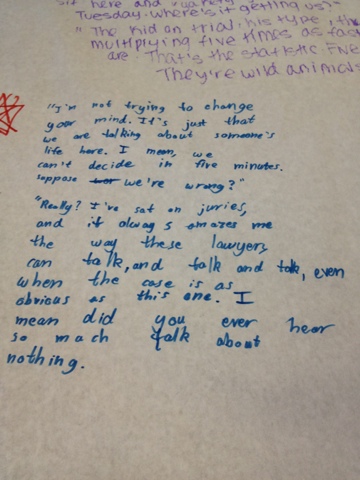 sit here and
Tuesday. where's it getting us?
"The kid on trial, his type, the
multiplying five times as fast
are. That's the statistic. FIVE
They're wild animals
"I'm not trying to change
your mind. It's just that
we are talking about someone's
life here. I mean, we
can't decide in five minutes.
suppose we're wrong?"
"Really? I've sat on juries,
and it always amazes me
the way these lawyers
can talk, and talk and talk, even
when the case is as
obvious as this one. I
mean did you ever hear
so mach talk about
nothing.